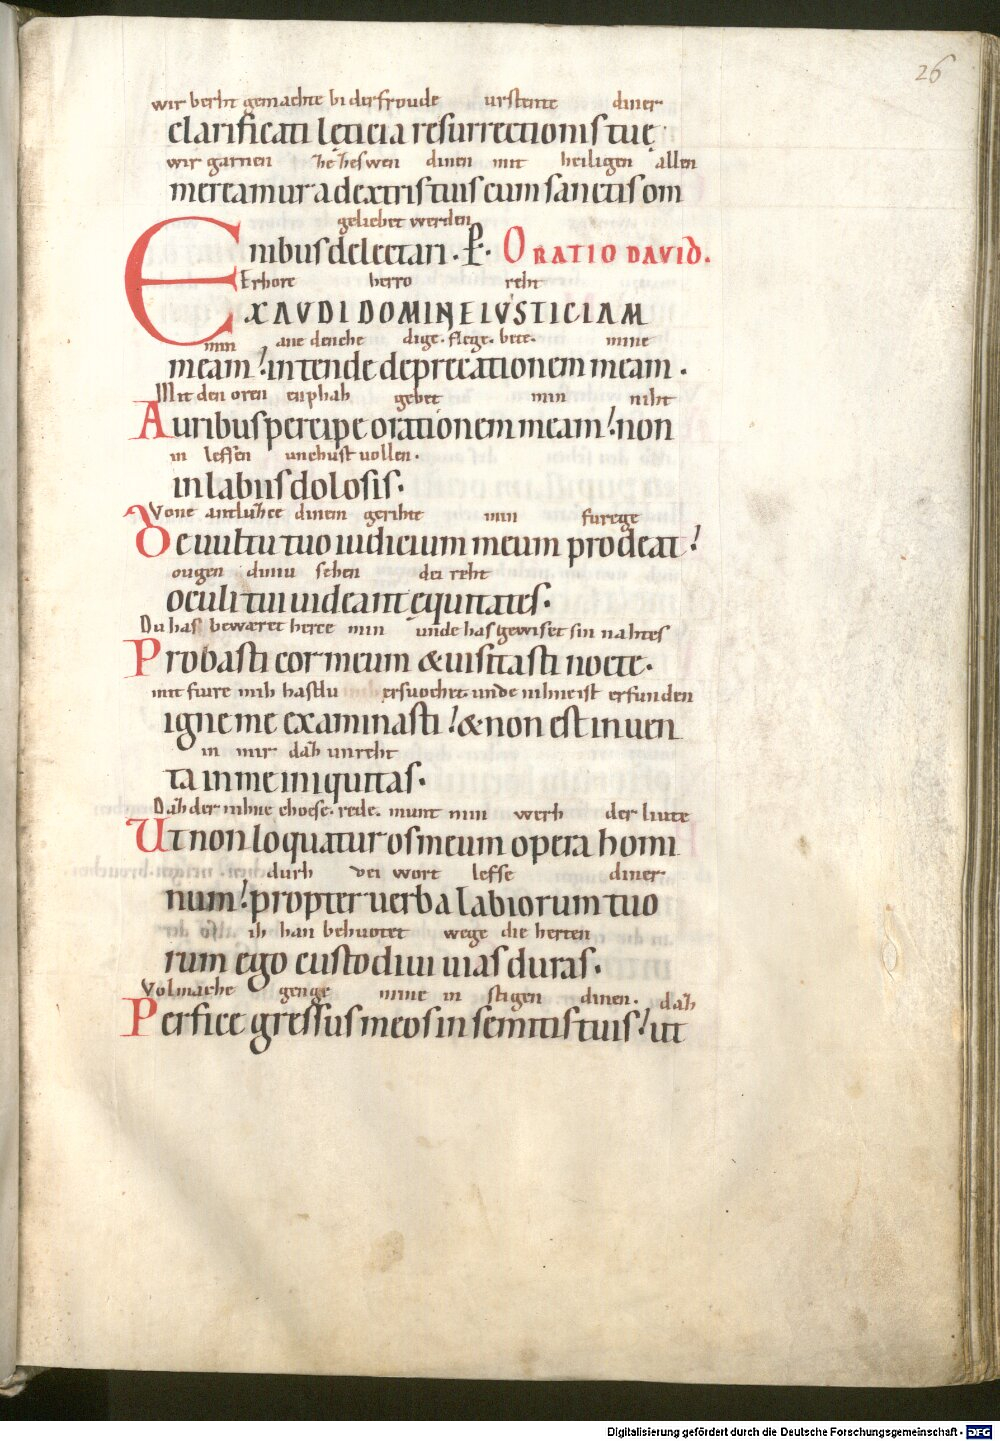 26
wir berht gemachte bi der froude urstente diner
clarificati lęticia resurrectionis tuę
wir garnen dinen mit heiligen allen
mereamur a dextris tuis cum sanctis om
geliebet werden
nibus delectari . P . ORATIO DAVID.
Erhore herro reht
EXAUDI DOMINE IUSTICIAM
min ane denche dige. flege. bete. mine
meam! intende deprecationem meam .
Mit den oren enphah gebet min niht
Auribus percipe orationem meam! non
in leffen unchust vollen .
in labiis dolosis.
Vone antluhce dinem gerihte min furege
De uultu tuo iudicium meum prodeat!
ougen dinu sehen dei reht
oculi tui uideant ęquitates.
Du has bewæret herce min unde has gewiset sin nahtes
Probasti cor meum & uisitasti nocte.
mit fiure mih hastu ersuochet. unde niht ist erfunden
igne me examinasti! & non est inuen
in mir dah unreht
ta in me iniquitas.
Dah der niht choese. rede. munt min werh der liute
Ut non loquatur os meum opera homi
durh dei wort leffse diner
num! propter uerba labiorum tuo
ih han behuotet wege die herten
rum ego custodiui uias duras.
Volmache genge mine in stigen dinen. dah
Perfice gressus meos in semitis tuis! ut
Digitalisierung gefördert durch die Deutsche Forschungsgemeinschaft - DFG